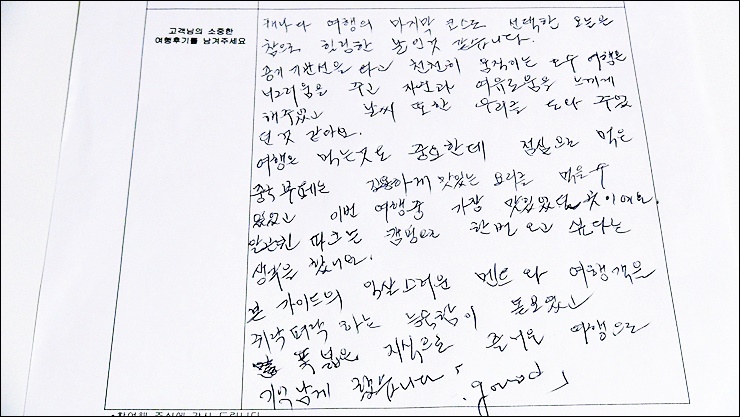 고객님의 소중한
여행후기를 남겨주세요
캐나다 여행의 마지막 코스로 선택한 오늘은
참으로 한 날인것 같습니다.
증기기관선을 타고 천천히 움직이는 호수 여행은
너그러움을 주고 자연과 여유로움을 느끼게
해주었고 날씨 또한 우리를 도와 주었
던것 같아요.
여행은 먹는것도 중요한데 점심으로 먹은
중식 부페는 다양하게 맛있는 요리를 먹을수
있었고 이번 여행중 가장 맛있었던 곳이예요.
알곤퀸 파크는 캠핑으로 한번 오고 싶다는
생각을 했네요.
본 가이드의 익살스러운 멘트와 여행객을
쥐락펴락 하는 능숙함이 돋보였고
폭넓은 지식으로 즐거운 여행으로
기억남게 했습니다 good